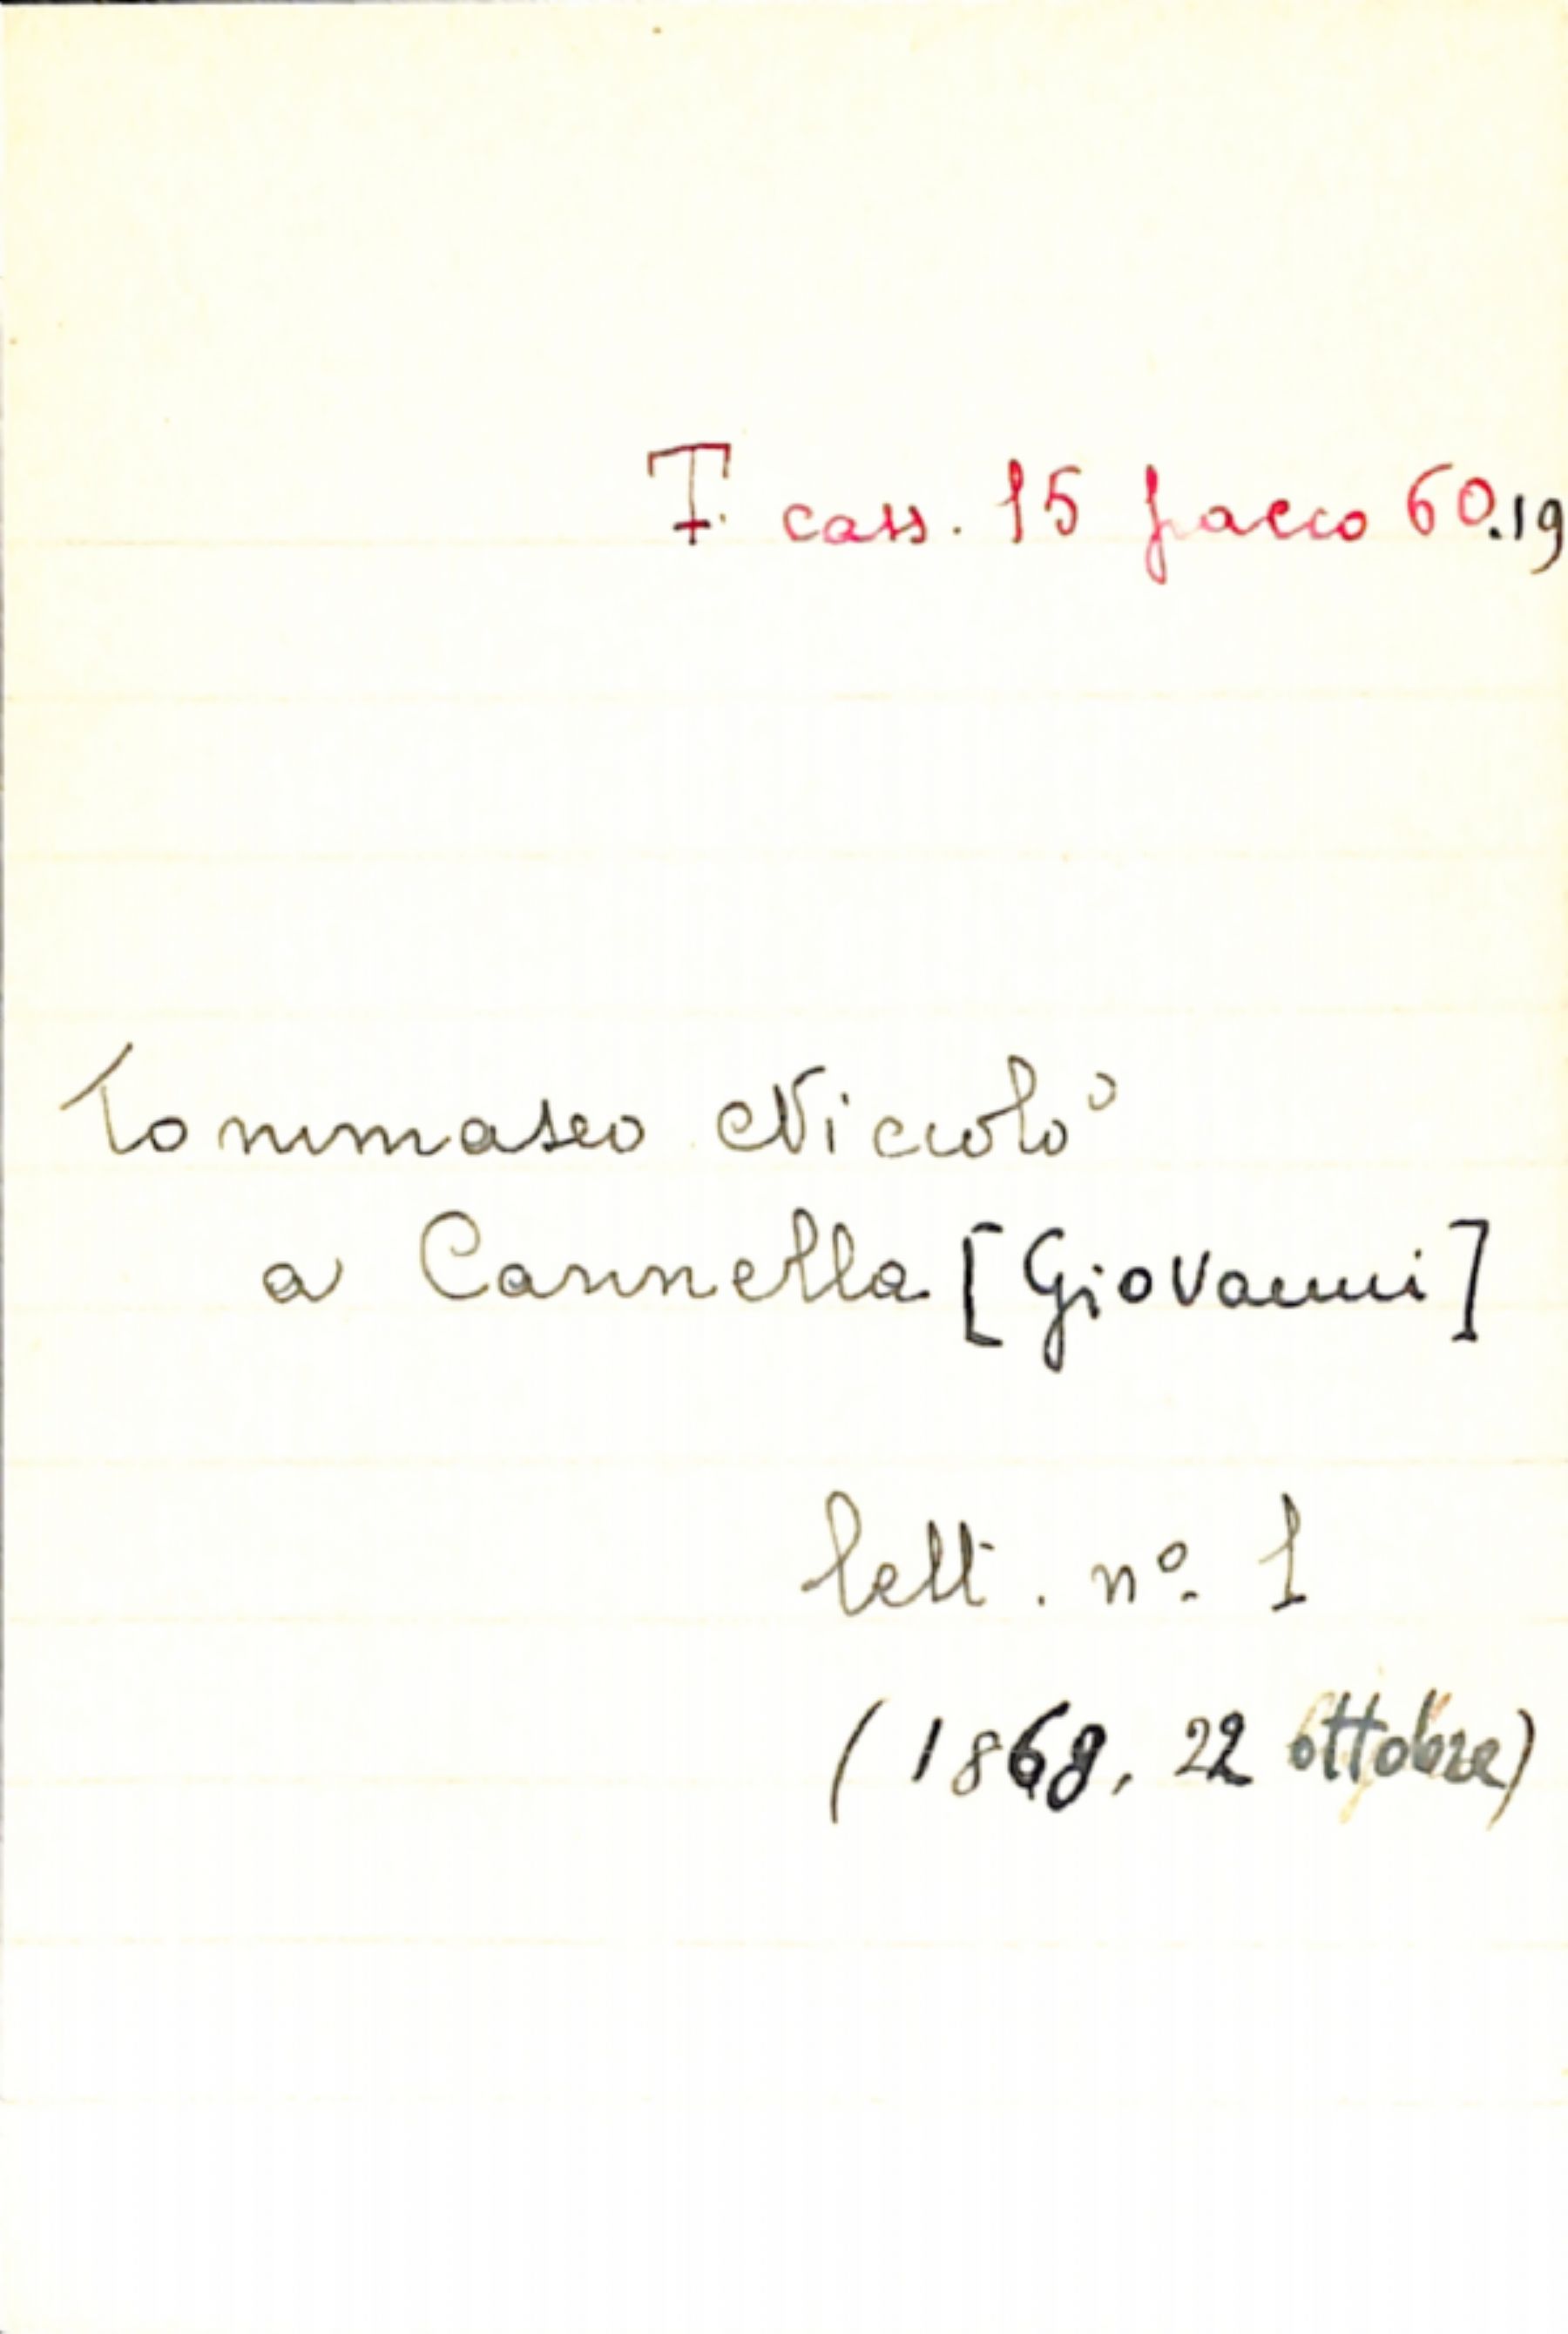 T. cass. 15 pacco 60.19
Tommaseo Niccolò
a Cannella [Giovanni]
lett. nº 1
(1868, 22 Ottobre)